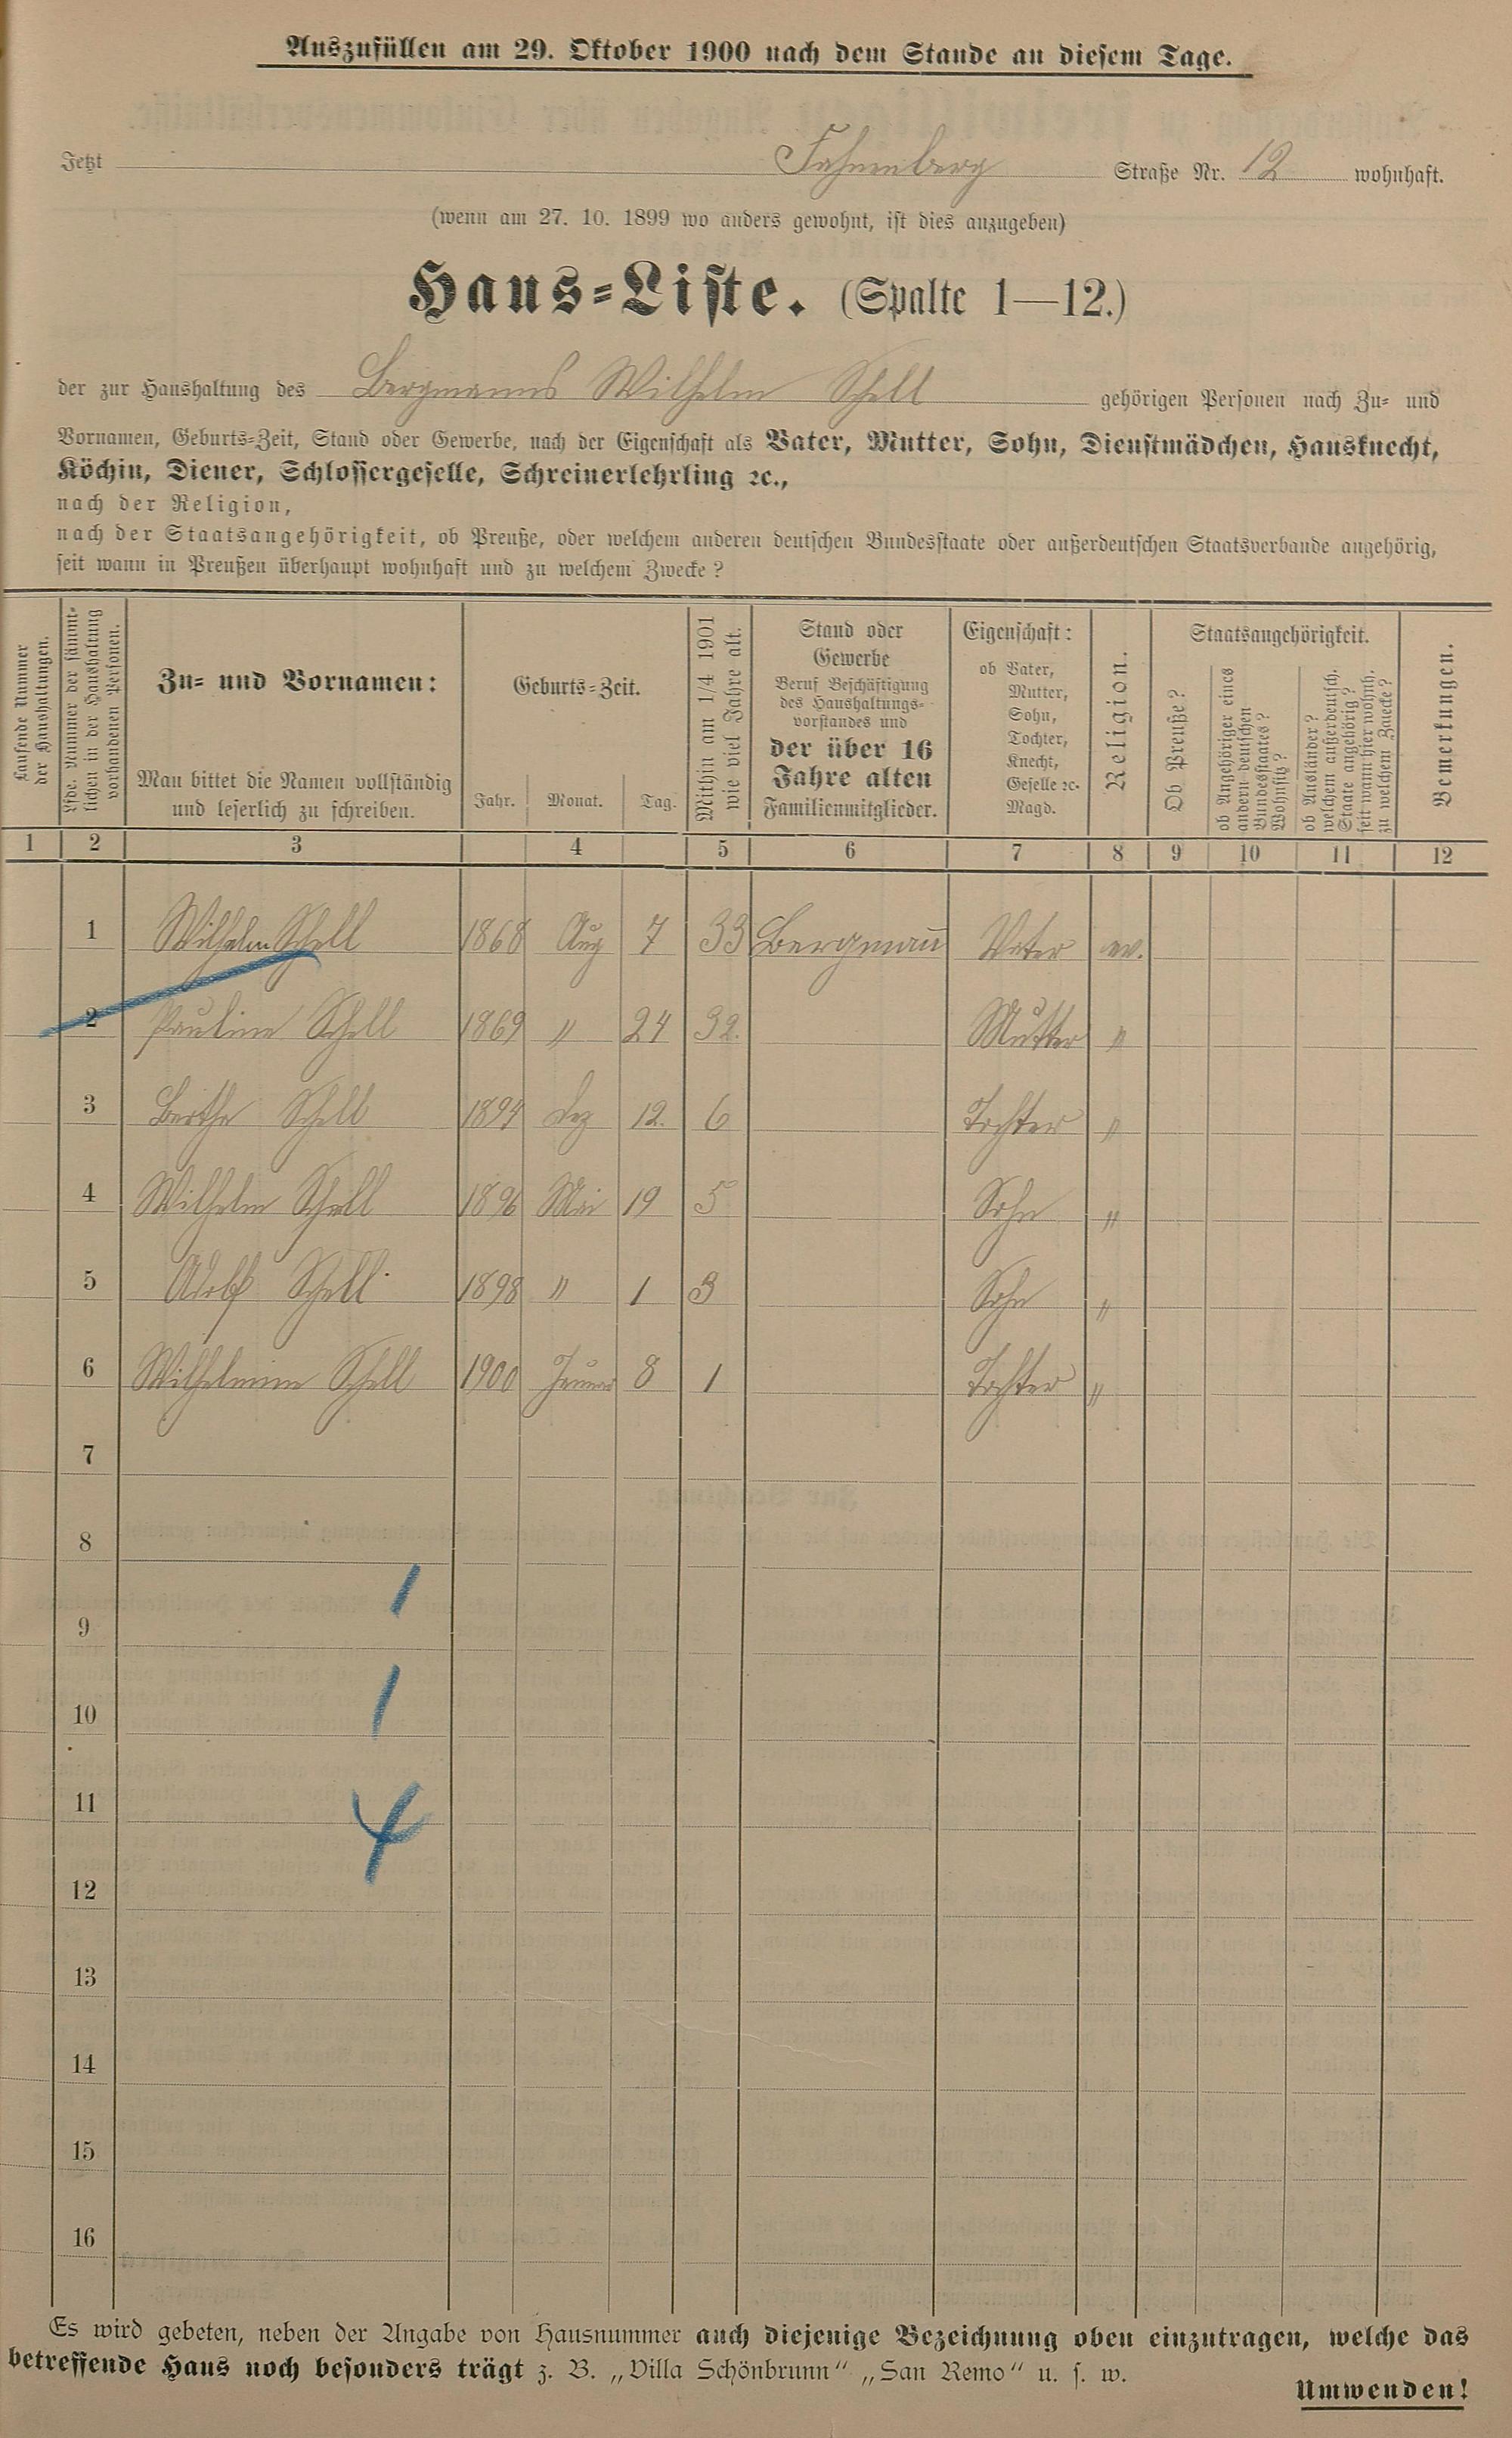 Auszufüllen am 29. Oktober 1900 nach dem Stande an diesem Tage.
Jetzt Fahnenberg Straße Nr. 12 wohnhaft.
(wenn am 27. 10. 1899 wo anders gewohnt, ist dies anzugeben)
Haus-Liste. (Spalte 1—12.)
der zur Haushaltung des Bergmanns Wilhelm Schell gehörigen Personen nach Zu- und
Vornamen, Geburts-Zeit, Stand oder Gewerbe, nach der Eigenschaft als Vater, Mutter, Sohn, Dienstmädchen, Hausknecht,
Köchin, Diener, Schlossergeselle, Schreinerlehrling ꝛc.,
nach der Religion,
nach der Staatsangehörigkeit, ob Preuße, oder welchem anderen deutschen Bundesstaate oder außerdeutschen Staatsverbande angehörig,
seit wann in Preußen überhaupt wohnhaft und zu welchem Zwecke?
Laufende Nummer
der Haushaltungen.
Lfde. Nummer der sämmt-
lichen in der Haushaltung
vorhandenen Personen.
Zu- und Vornamen:
Man bittet die Namen vollständig
und leserlich zu schreiben.
Geburts-Zeit.
Jahr. Monat. Tag.
Mithin am 1/4 1901
wie viel Jahre alt.
Stand oder
Gewerbe
Beruf Beschäftigung
des Haushaltungs-
vorstandes und
der über 16
Jahre alten
Familienmitglieder.
Eigenschaft:
ob Vater,
Mutter,
Sohn,
Tochter,
Knecht,
Geselle ꝛc.
Magd.
Religion.
Staatsangehörigkeit.
Ob Preuße?
ob Angehöriger eines
andern deutschen
Bundesstaates?
Wohnsitz?
ob Ausländer?
welchem außerdeutsch.
Staate angehörig?
seit wann hier wohnh.
zu welchem Zwecke?
Bemerkungen.
1 2 3 4 5 6 7 8 9 10 11 12
1 Wilhelm Schell 1868 Aug 7 33 Bergmañ Vater ev.
2 Pauline Schell 1869 " 24 32. Mutter "
3 Berthe Schell 1894 Dez 12. 6 Tochter "
4 Wilhelm Schell 1896 Mai 19 5 Sohn "
5 Adolf Schell 1898 " 1 3 Sohn "
6 Wilhelmine Schell 1900 Januar 8 1 Tochter "
7
8
1
9
1
10
11
4
12
13
14
15
16
Es wird gebeten, neben der Angabe von Hausnummer auch diejenige Bezeichnung oben einzutragen, welche das
betreffende Haus noch besonders trägt z. B. „Villa Schönbrunn“ „San Remo“ u. s. w.
Umwenden!